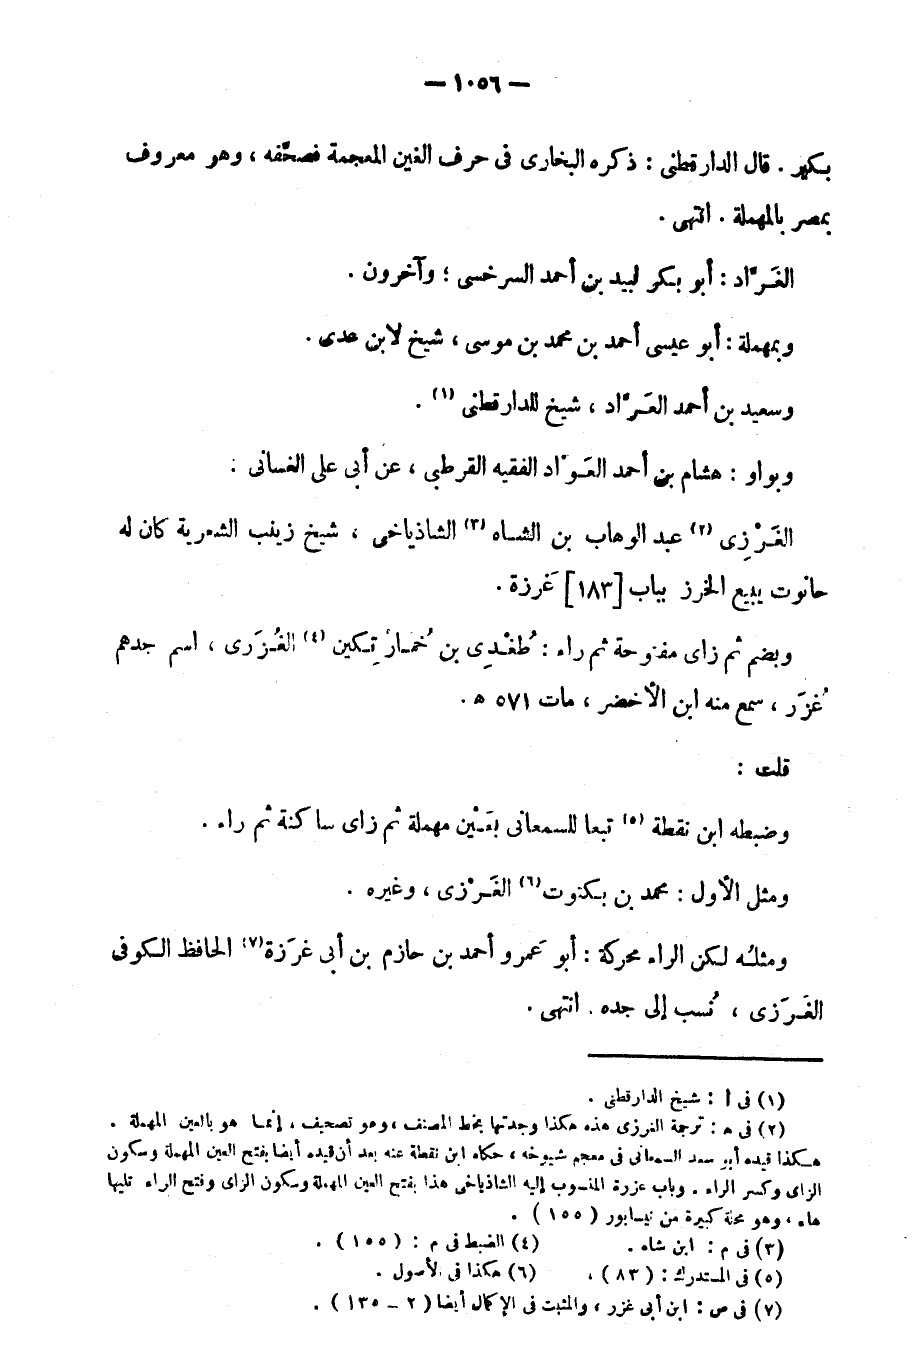 — ١٠٥٦ —
بكير . قال الدارقطنى : ذكره البخارى فى حرف الغين المعجمة فصحّفه ، وهو معروف
بمصر بالمهملة . انتهى .
الغَـرَّاد : أبو بكر لبيد بن أحمد السرخسى ؛ وآخرون .
وبمهملة : أبو عيسى أحمد بن محمد بن موسى ، شيخ لابن عدى .
وسعيد بن أحمد العَـرَّاد ، شيخ للدارقطنى (١) .
وبواو : هشام بن أحمد العَـوَّاد الفقيه القرطبى ، عن أبى على الغسانى :
الغَـرْزِى (٢) عبد الوهاب بن الشـاه (٣) الشاذياخى ، شيخ زينب الشعرية كان له
حانوت يبيع الخرز بباب [١٨٣] غَرزة .
وبضم ثم زاى مفتوحة ثم راء : طُغْـدِى بن خُمـارْتِـكين (٤) الغُـزَرى ، اسم جدهم
غُزَر ، سمع منه ابن الأخضر ، مات ٥٧١ هـ .
قلت :
وضبطه ابن نقطة (٥) تبعا للسمعانى بعَـيْن مهملة ثم زاى ساكنة ثم راء .
ومثل الأول : محمد بن بـكنوت (٦) الغَـرْزى ، وغيره .
ومثلـُه لـكن الراء محركة : أبو عَمرو أحمد بن حازم بن أبى غرَزة (٧) الحافظ الـكوفى
الغَـرَزى ، نُسب إلى جده . انتهى .
(١) فى أ : شيخ الدارقطنى .
(٢) فى هـ : ترجمة الغرزى هذه هكذا وجدتها بخط المصنف ، وهو تصحيف ، إنمـا هو بالعين المهملة .
هـكذا قيده أبو سعد السمعانى فى معجم شيوخه ، حكاه ابن نقطة عنه بعد أن قيده أيضا بفتح العين المهملة وسكون
الزاى وكسر الراء . وباب عزرة المنسوب إليه الشاذياخى هذا بفتح العين المهملة وسكون الزاى وفتح الراء تليها
هاء ، وهو محلة كبيرة من نيسابور ( ١٥٥ ) .
(٣) فى م : ابن شاه . (٤) الضبط فى م : ( ١٥٥ ) .
(٥) فى المستدرك : ( ٨٣ ) ، (٦) هكذا فى الأصول .
(٧) فى ص : ابن أبى غزر ، والمثبت فى الإكمال أيضا ( ٢ – ١٣٥ ) .